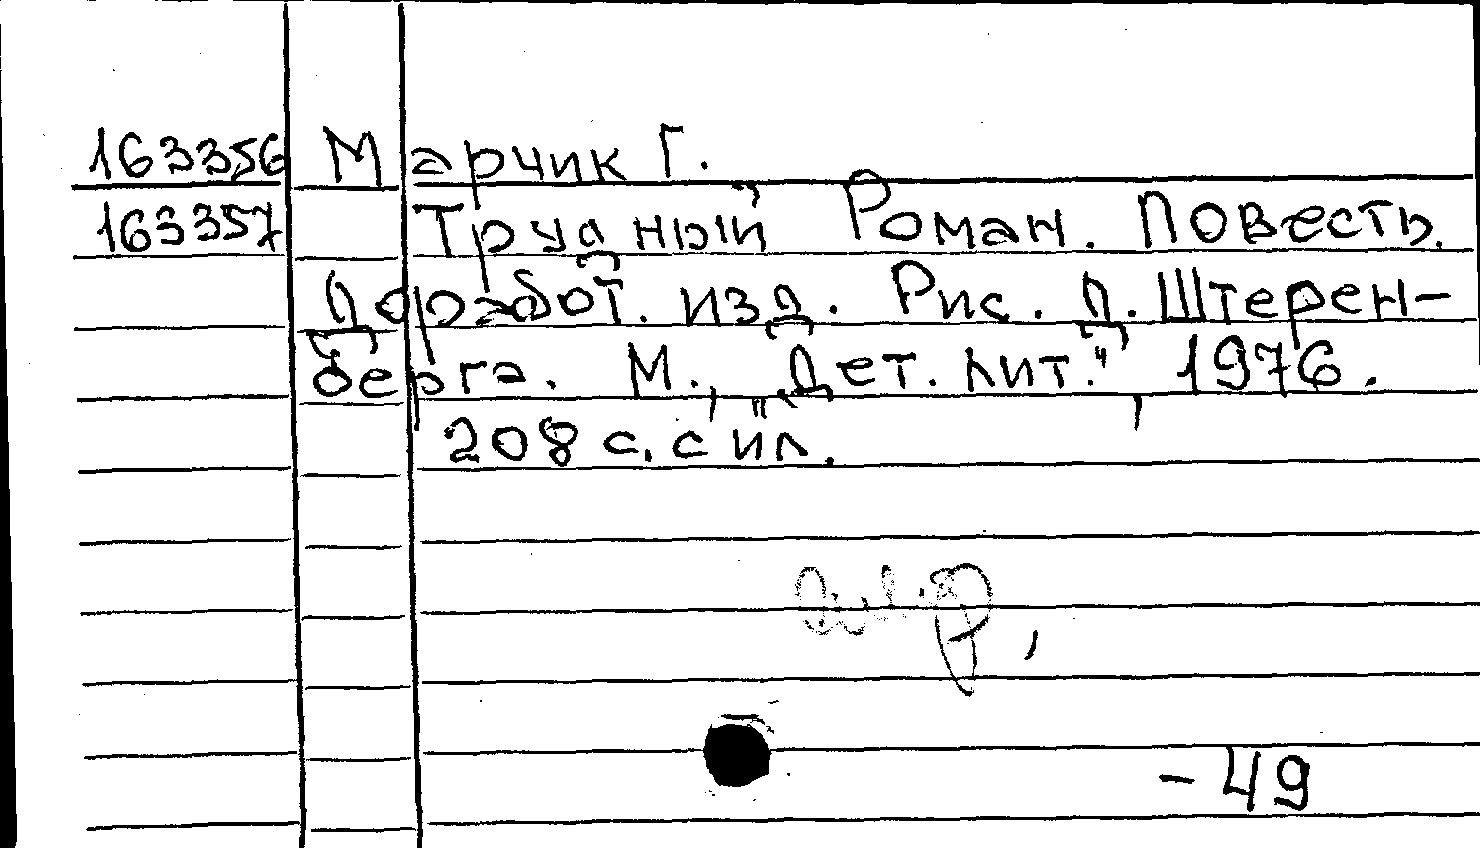 163356 Марчик Г.
163357 Трудный Роман. Повесть.
Доработ. изд. Рис. Д. Штерен-
берга. М., "Дет. лит.", 1976.
208 с. с ил.
- 49